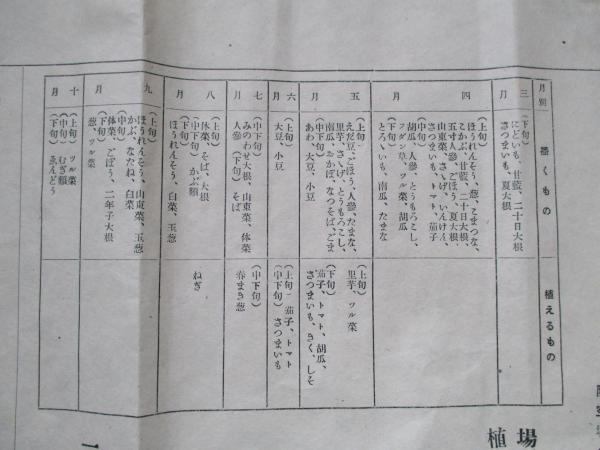 月別
播くもの
植えるもの
三月
(下旬)
にどいも、甘藍、二十日大根
さつまいも、夏大根
四月
(上旬)
ほうれんそう、葱、こまつな、
こかぶ、甘藍、二十日大根、
五寸人參、ごぼう、夏大根、
山東菜、さゝげ、いんげん、
さつまいも、トマト、茄子
(中旬)
胡瓜、人參、とうもろこし、
フダン草、ツル菜、胡瓜
(下旬)
とろゝいも、南瓜、たまな
五月
(上旬)
えだ豆、ごぼう、人參、たまな、
里芋、さゝげ、とうもろこし、
南瓜、おかぼ、なつそば、ごま
(中下旬)
あわ、大豆、小豆
(上旬)
里芋、ツル菜
(下旬)
茄子、トマト、胡瓜、
さつまいも、きく、しそ
六月
(上旬)
大豆、小豆
(上旬)茄子、トマト
(中下旬)さつまいも
七月
(中旬)
みのわせ大根、山東菜、体菜
人參(下旬)そば
(中下旬)
春まき葱
八月
(上旬)
体菜、そば、大根
(中旬)かぶ類
(下旬)
ほうれんそう、白菜、玉葱
ねぎ
九月
(上旬)
ほうれんそう、山東菜、玉葱
かぶ、なたね、白菜
(中旬)
体菜、ごぼう、二年子大根
(下旬)
葱、ツル菜
十月
(上旬)ツル菜
(中旬)むぎ類
(下旬)ゑんどう
場
植
一